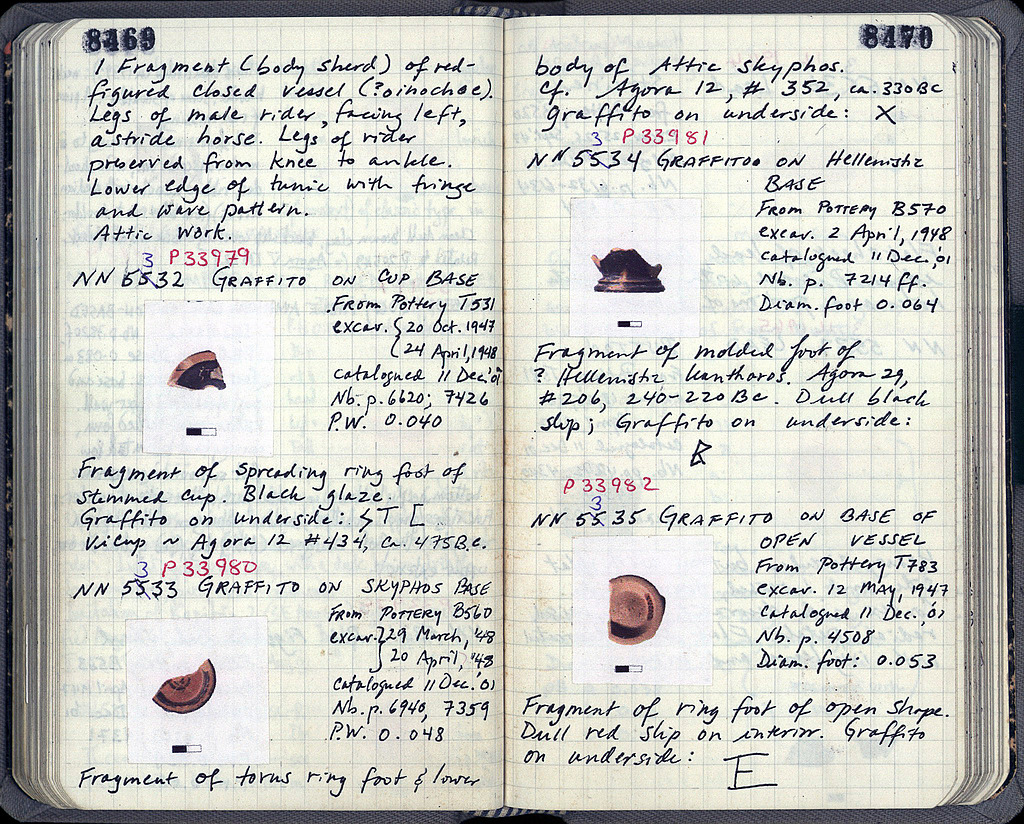 8469
1 Fragment (body sherd) of red-
figured closed vessel (?oinochoe).
Legs of male rider, facing left,
astride horse. Legs of rider
preserved from knee to ankle.
Lower edge of tunic with fringe
and wave pattern.
Attic work.
3 P33979
NN 5532 GRAFFITO ON CUP BASE
From Pottery T531
excav. { 20 Oct. 1947
24 April, 1948
catalogued 11 Dec. '01
Nb. p. 6620; 7426
P.W. 0.040
Fragment of spreading ring foot of
stemmed cup. Black glaze.
Graffito on underside: ϟT [
Vicup ~ Agora 12 #434, ca. 475 B.C.
3 P33980
NN 5533 GRAFFITO ON SKYPHOS BASE
FROM POTTERY B560
excav. } 29 March, '48
20 April, '48
catalogued 11 Dec. '01
Nb. p. 6940, 7359
P.W. 0.048
Fragment of torus ring foot & lower
8470
body of Attic skyphos.
Cf. Agora 12, # 352, ca. 330 BC
Graffito on underside: X
3 P33981
NN 5534 GRAFFITOO ON Hellenistic
BASE
From POTTERY B570
excav. 2 April, 1948
catalogued 11 Dec. '01
Nb. p. 7214 ff.
Diam. foot 0.064
Fragment of molded foot of
? Hellenistic kantharos. Agora 29,
#206, 240-220 BC. Dull black
slip; Graffito on underside:
P33982
3
NN 5535 GRAFFITO ON BASE OF
OPEN VESSEL
From Pottery T783
excav. 12 MAY, 1947
catalogued 11 Dec. '01
Nb. p. 4508
Diam. foot: 0.053
Fragment of ring foot of open shape.
Dull red slip on interior. Graffito
on underside: E